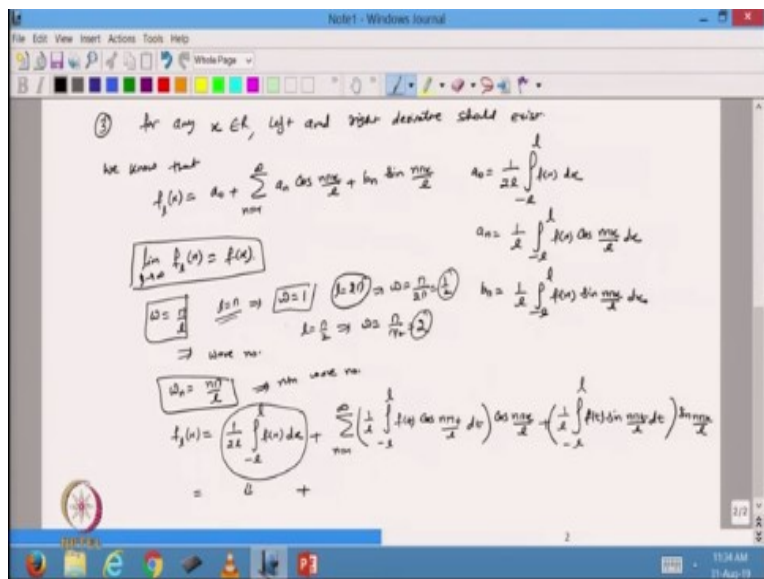 Note1 - Windows Journal
File Edit View Insert Actions Tools Help
Whole Page
B I
③ for any x ∈ R, left and right derivative should exist.
We know that
f_l(x) = a₀ + ∑_{n=1}^{∞} aₙ cos nπx/l + bₙ sin nπx/l
a₀ = 1/2l ∫_{-l}^{l} f(x) dx
aₙ = 1/l ∫_{-l}^{l} f(x) cos nπx/l dx
lim_{l→∞} f_l(x) = f(x).
bₙ = 1/l ∫_{-l}^{l} f(x) sin nπx/l dx
ω = π/l l=π ⇒ ω=1 l=2π ⇒ ω = π/2π = 1/2
l = π/2 ⇒ ω = π/π/2 = 2
⇒ wave no.
ωₙ = nπ/l ⇒ nth wave no.
f_l(x) = 1/2l ∫_{-l}^{l} f(x) dx + ∑_{n=1}^{∞} (1/l ∫_{-l}^{l} f(t) cos nπt/l dt) cos nπx/l + (1/l ∫_{-l}^{l} f(t) sin nπt/l dt) sin nπx/l
= +
2/2
2
NPTEL
11:34 AM
21-Aug-19